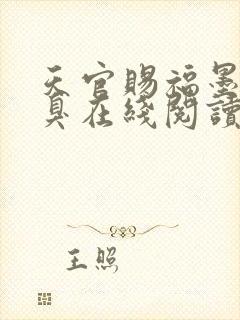 天官賜福墨
臭在綫閱讀
王照